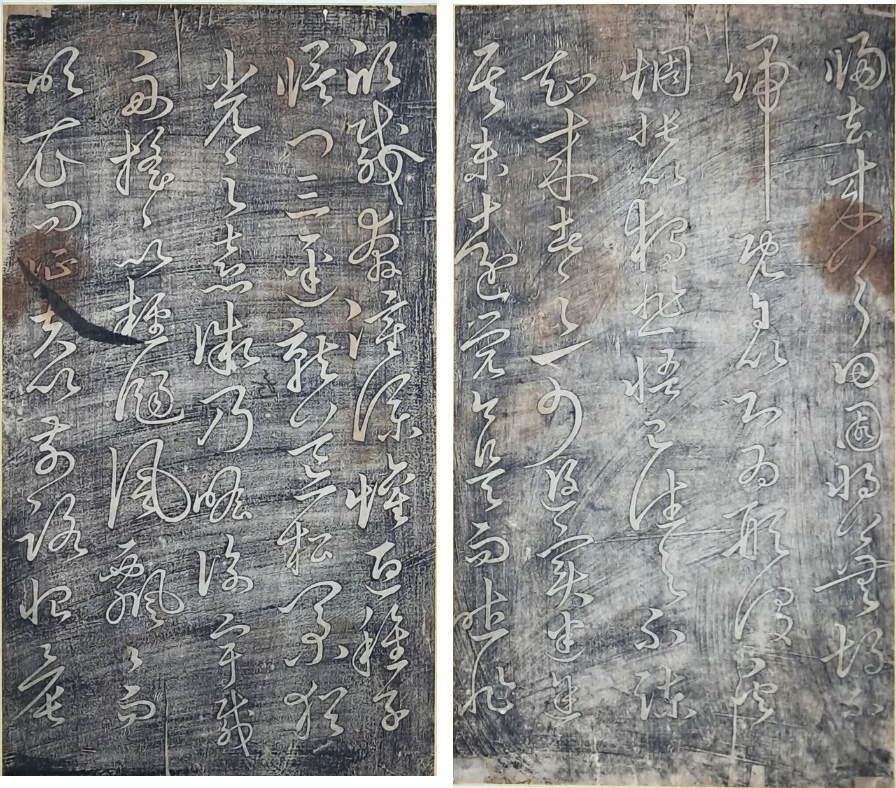 歸去來兮田園將蕪胡不
歸既自以心為形役奚
惆悵而獨悲悟已往之不諫
知來者之可追實迷途
其未遠覺今是而昨非
欣載奔僮僕歡迎稚子
候門三逕就荒松菊猶
光之熹微乃瞻衡宇載
舟搖搖以輕颺風飄飄而
吹衣問征夫以前路恨晨